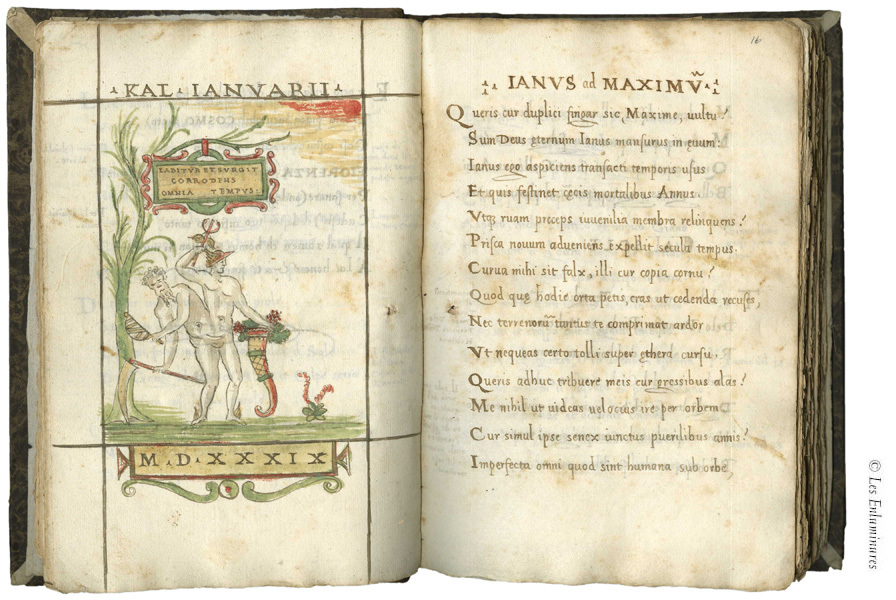 ·KAL·IANVARII·
LABITVR ET SVRGIT
CORRODENS
OMNIA TEMPVS:
M·D·XXXIX
16
IANVS ad MAXIMV̄
Queris cur duplici fingar sic, Maxime, uultu?
Sum Deus eternum Ianus mansurus in euum:
Ianus ego aspiciens transacti temporis usus
Et quis festinet cecis mortalibus Annus.
Vtq; ruam preceps iuuenilia membra relinquens?
Prisca nouum adueniens expellit secula tempus.
Curua mihi sit falx, illi cur copia cornu?
Quod que hodie orta petis, cras ut cedenda recuses,
Nec terrenorū tantus te comprimat ardor
Vt nequeas certo tolli super ethera cursu,
Queris adhuc tribuere meis cur gressibus alas?
Me nihil ut uideas uelocius ire per orbem
Cur simul ipse senex iunctus puerilibus annis?
Imperfecta omni quod sint humana sub orbe
© Les Enluminures